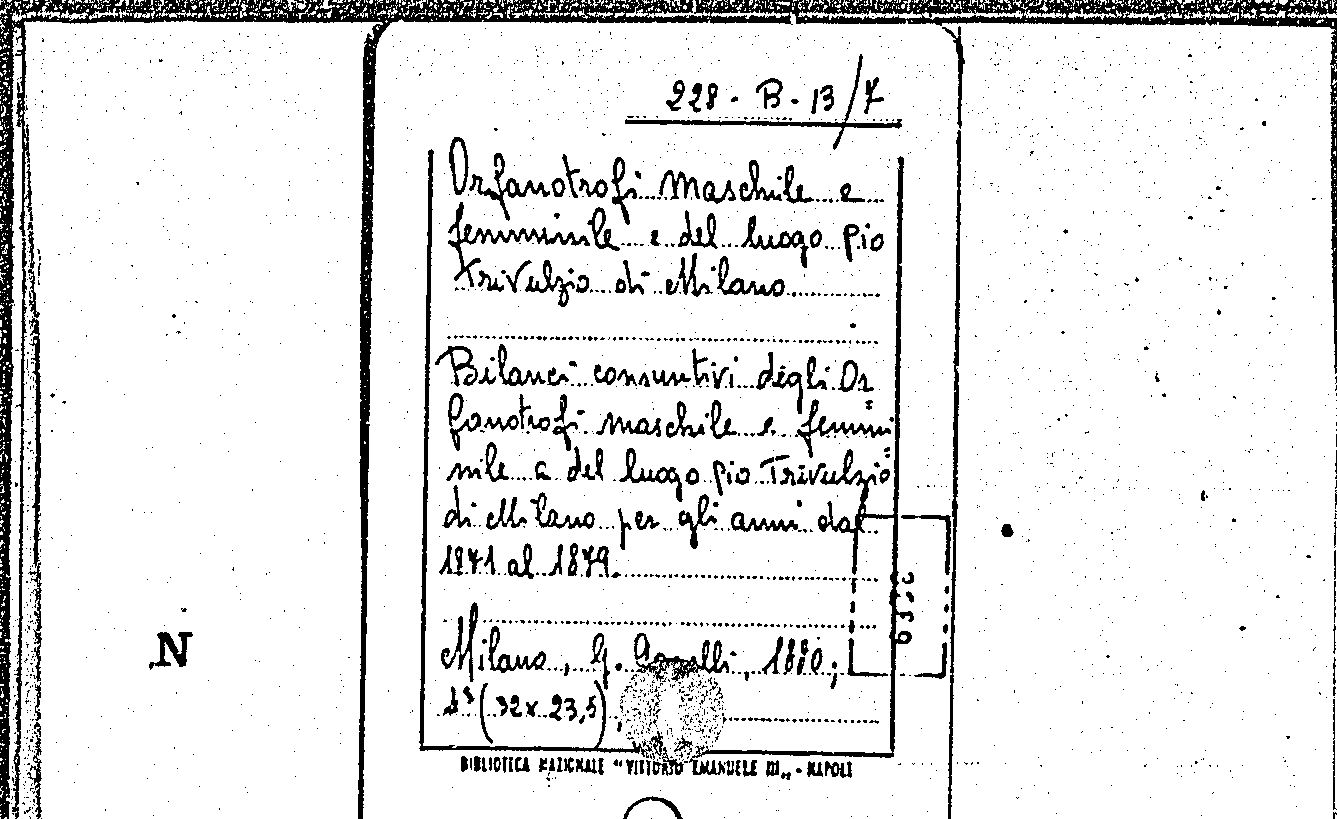 228 - B - 13/7
Orfanotrofi maschile e
femminile e del luogo pio
Trivulzio di Milano
Bilanci consuntivi degli Or=
fanotrofi maschile e femmi=
nile e del luogo pio Trivulzio
di Milano per gli anni dal
1871 al 1879.
Milano, G. Agnelli, 1880;
(32x23,5),
BIBLIOTECA NAZIONALE "VITTORIO EMANUELE III„ - NAPOLI
N